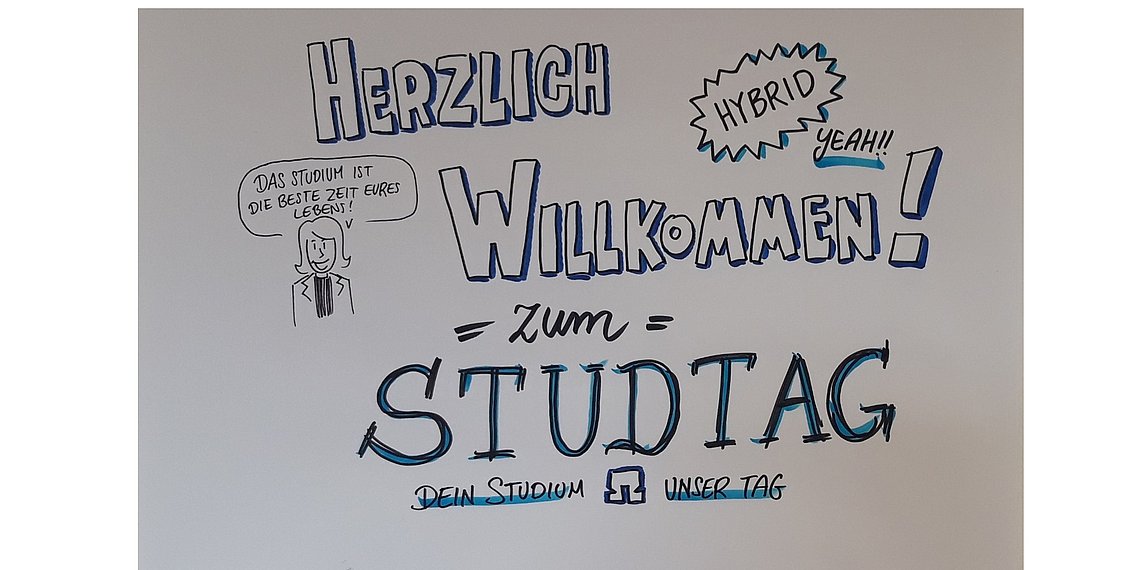 HERZLICH
HYBRID
YEAH!!
DAS STUDIUM IST
DIE BESTE ZEIT EURES
LEBENS!
WILLKOMMEN!
= zum =
STUDTAG
DEIN STUDIUM UNSER TAG